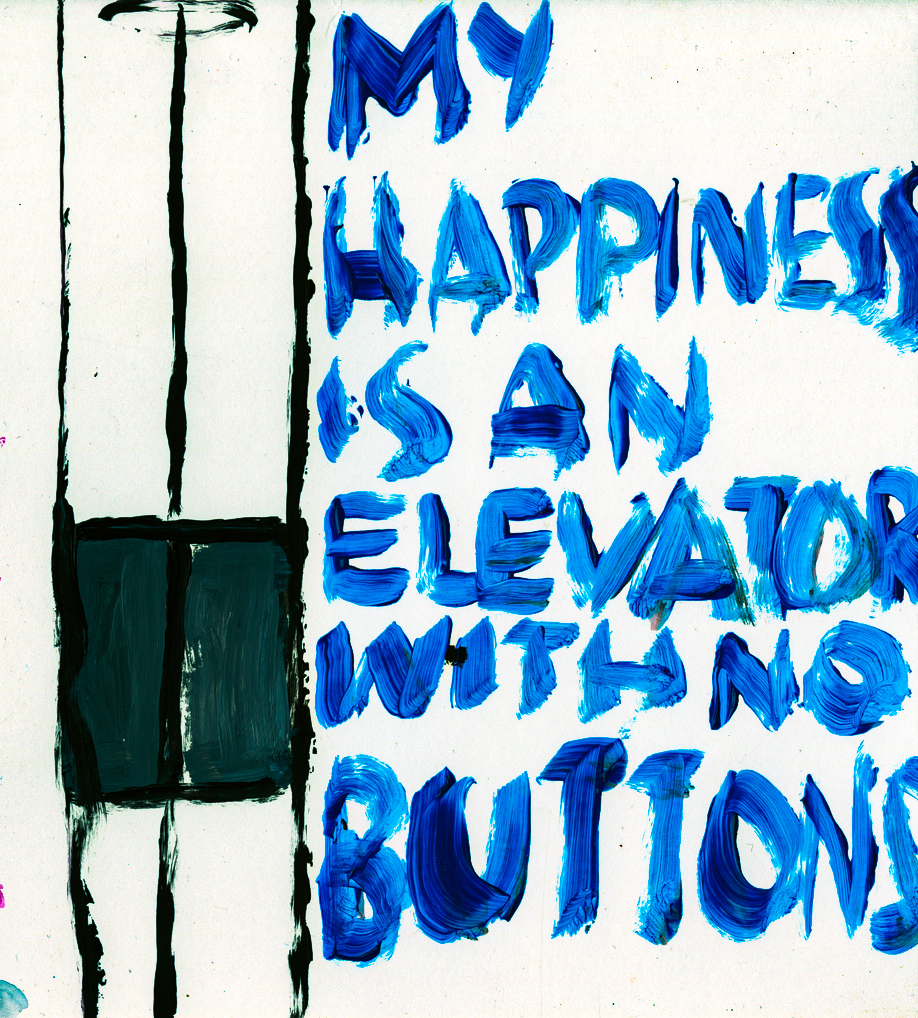 MY
HAPPINESS
IS AN
ELEVATOR
WITH NO
BUTTONS